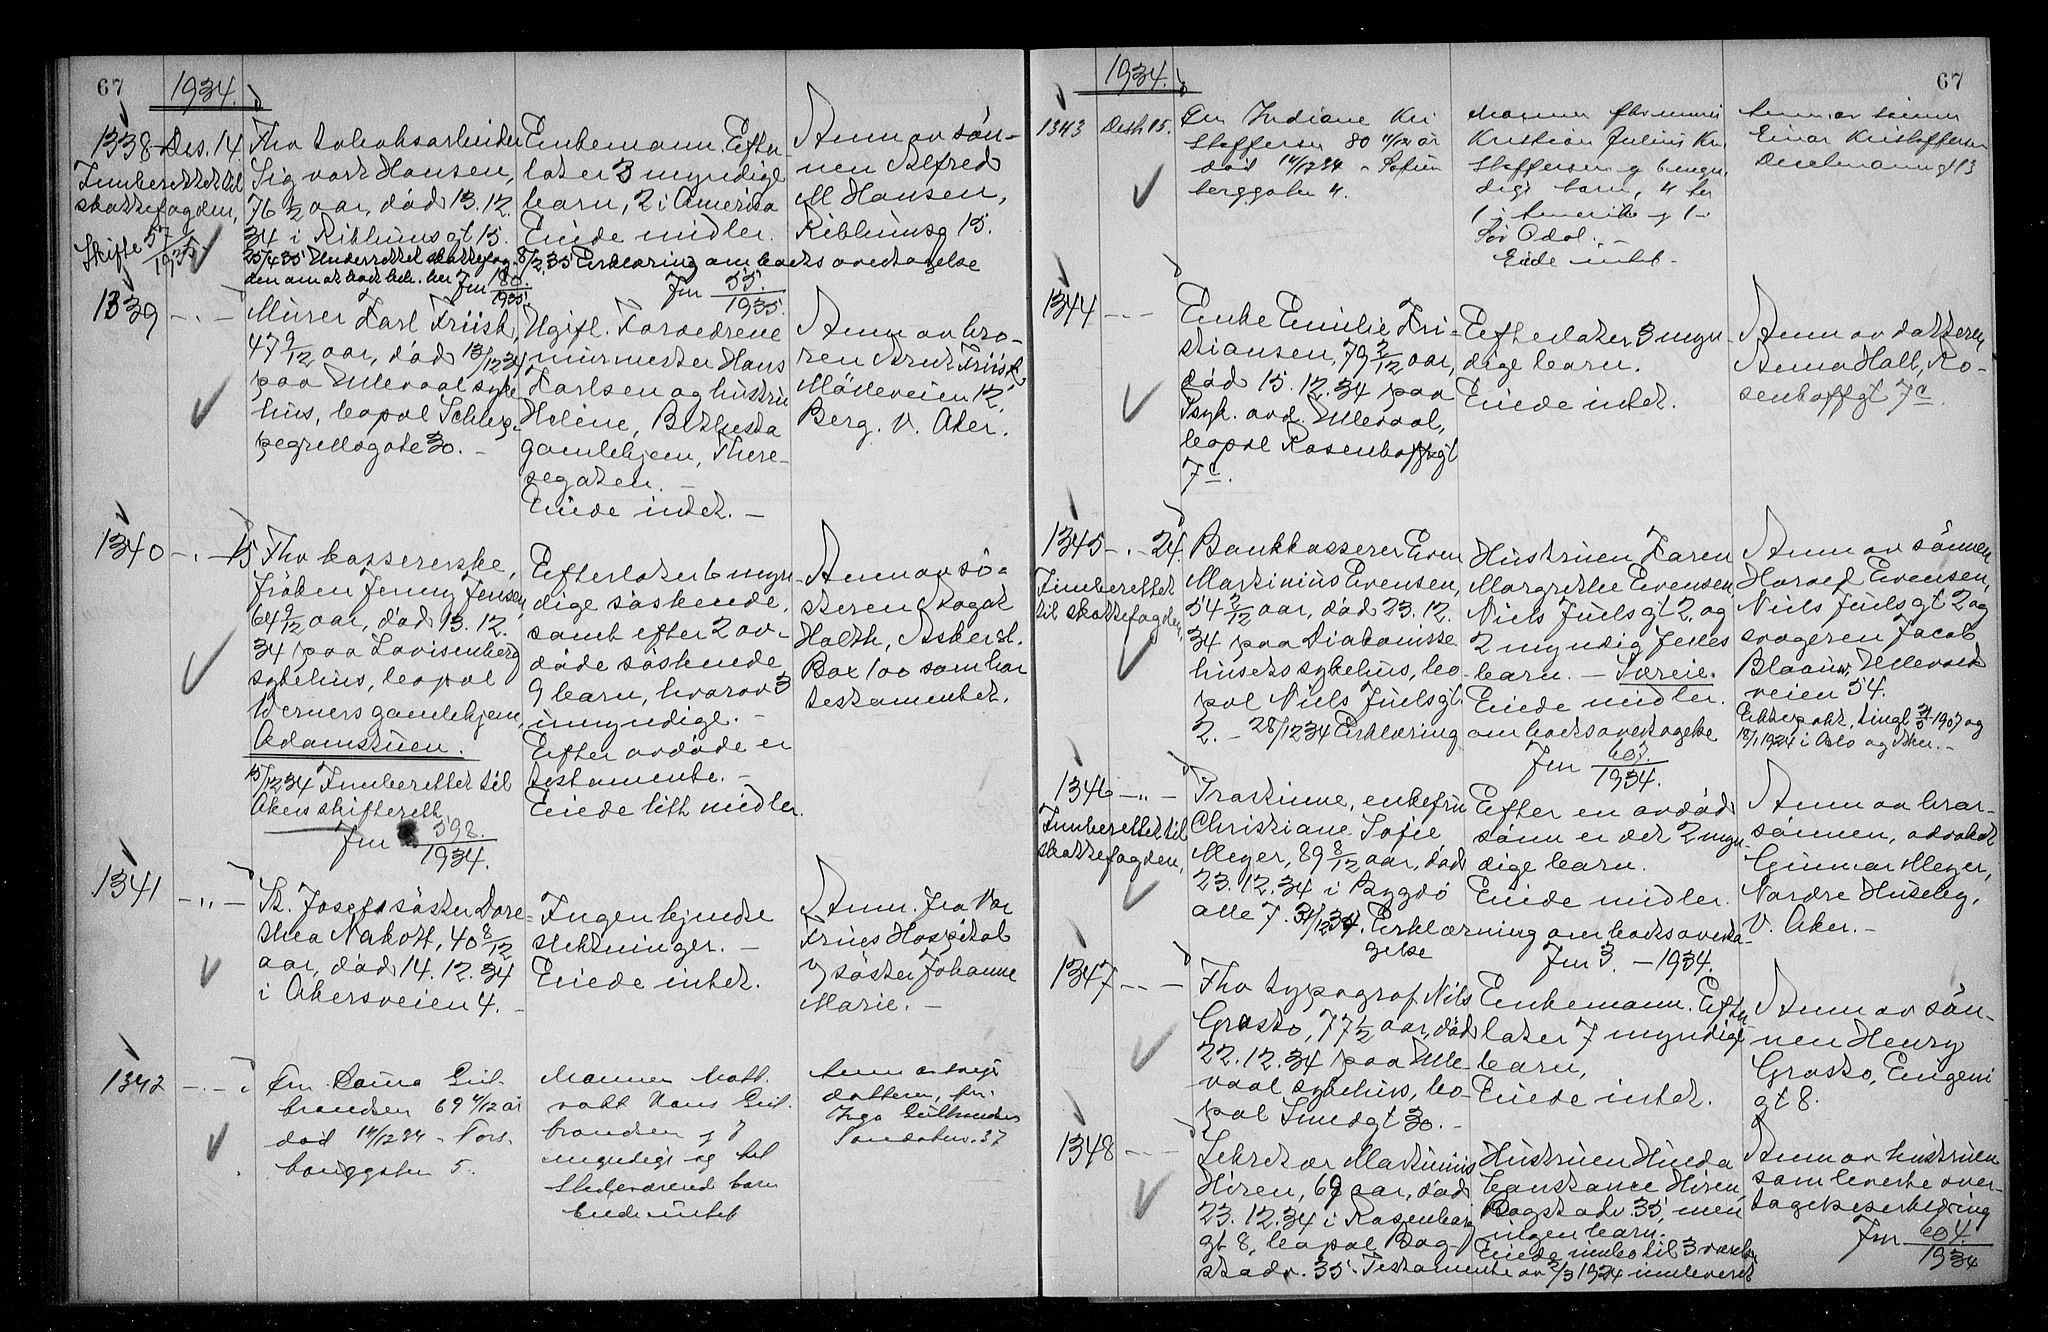 67
1934.
1338
Innberettet til
skattefogden,
Skifte 57/1935.
Des. 14
Fhv tolvoksarbeider
Sigvart Hansen,
76 1/2 aar, död 13.12.
34 i Kiblumsgt 15.
25/4 35 Underrettet skattefog-
den om at boet beh. her Jnr 180/1935
Enkemann. Efter-
later 3 myndige
barn, 2 i Amerika
Eiede midler.
8/1 35 Erklæring om boets overtagelse
Jnr 55/1935.
Anm av sön-
nen Alfred
M Hansen,
Kiblumsg 15.
1339
Murer Karl Friisk,
47 9/12 aar, död 13/12 34
paa Ullevaal syke
hus, bopæl Schlep-
pegrellsgate 30.
Ugift. Forældrene
murmester Hans
Karlsen og hustru
Helene, Bethesta
gamlehjem, There-
segaten.
Eiede intet.
Anm av bro-
ren Arnt Friisk
Mölleveien 12,
Berg. V. Aker.
1340
15
Fhv kassererske,
fröken Jenny Jensen,
64 9/12 aar, död 13.12.
34 paa Lovisenberg
sykehus, bopæl
Werners gamlehjem,
Adamstuen.
15/12 34 Innberettet til
Akers skifterett.
Jnr 598./1934.
Efterlater 6 myn-
dige söskende,
samt efter 2 av-
döde söskende
9 barn, hvorav 3
umyndige.
Efter avdöde er
testamente.
Eiede litt midler.
Anm av sö-
steren Aagot
Holth, Asker st.
Box 100 som har
testamentet.
1341
St. Josefs söster Doro-
thea Nakott, 40 8/12
aar, död 14.12.34
i Akersveien 4.
Ingen kjendte
slektninger.
Eiede intet.
Anm. fra Vor
Frues Hospital
v/ söster Johanne
Marie.
1342
Fru Laura Gul-
brandsen 69 4/12 år
död 14/12 34 i Tors-
bauggaten 5.
Mannen Natt-
vakt Hans Gul-
brandsen og 7
myndige og tel
stedeværend barn
Eiede intet
Anm av svige
datteren, fru
Inga Gulbrandsen
37
67
1934.
1343
Desb 15.
Fru Indiane Kri
stoffersen 80 11/12 år
död 14/12 34 i Sofien
berggaten 4.
Mannen
Kristian Julius Kri
stoffersen og 6 myn
dige barn, 4 her
1 i Amerika og 1 i
Sör Odal.
Eiede intet
Anm av sönnen
Einar Kristoffersen
1344
Enke Emilie Kri-
stiansen, 79 2/12 aar,
död 15.12.34 paa
Psyk. avd. Ullevaal,
bopæl Rosenhoffsgt
7c.
Efterlater 3 myn-
dige barn.
Eiede intet.
Anm av datteren
Anna Hall, Ro-
senhoffgt 7c.
1345
Innberettet
til skattefogden,
24.
Bankkasserer Even
Martinius Evensen,
54 2/12 aar, död 23.12.
34 paa Diakonisse
husets sykehus, bo-
pæl Niels Juelsgt
2. - 28/12 34 Erklæring om boets overtagelse
Jnr 603/1934.
Hustruen Karen
Margrethe Evensen,
Niels Juelsgt 2, og
2 myndig felles
barn. - Særeie.
Eiede midler.
Anm av sönnen
Harald Evensen,
Niels Juelsgt 2 og
svogeren Jacob
Blaauw, Ullevaals
veien 54.
Ektepakt, tingl 1907 og
18/1 1934 i Oslo og Aker.
1346
Innberettet til
skattefogden,
Traktinne, enkefru
Christiane Sofie
Meyer, 89 8/12 aar, död
23.12.34 i Bygdö
alle 7. 31/12 34. Erklærning om boets overta-
gelse Jnr 3. - 1934.
Efter en avdöd
sönn er det 2 myn-
dige barn.
Eiede midler.
Anm av bror-
sönnen, advokat
Gunnar Meyer,
Nordre Huseby,
V. Aker.
1347
Fhv typograf Nils
Grosto, 77 1/2 aar, död
22.12.34 paa Ulle-
vaal sykehus, bo-
pæl Smedgt 30.
Enkemann. Efter
later 7 myndige
barn,
Eiede intet.
Anm av sön-
nen Henry
Grosto, Eugeni
gt 8.
1348
Sekretær Martinius
Hoven, 69 aar, död
23.12.34 i Rosenborg
gt 8, bopæl Bog-
stadv. 35. Testamente av 2/3 1934 innleveret
Hustruen Hulda
Constance Hoven,
Bogstadv. 35, men
ingen barn.
Anm av hustruen
som leverte over-
tagelseserklæring
Jnr 604./1934